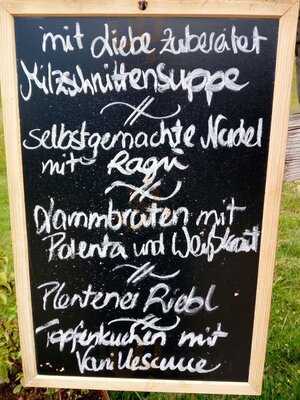 mit Liebe zubereitet
Milzschnittensuppe
selbstgemachte Nudel
mit Ragù
Lammbraten mit
Polenta und Weißkraut
Plantener Riebl
Topfenkuchen mit
Vanillesauce